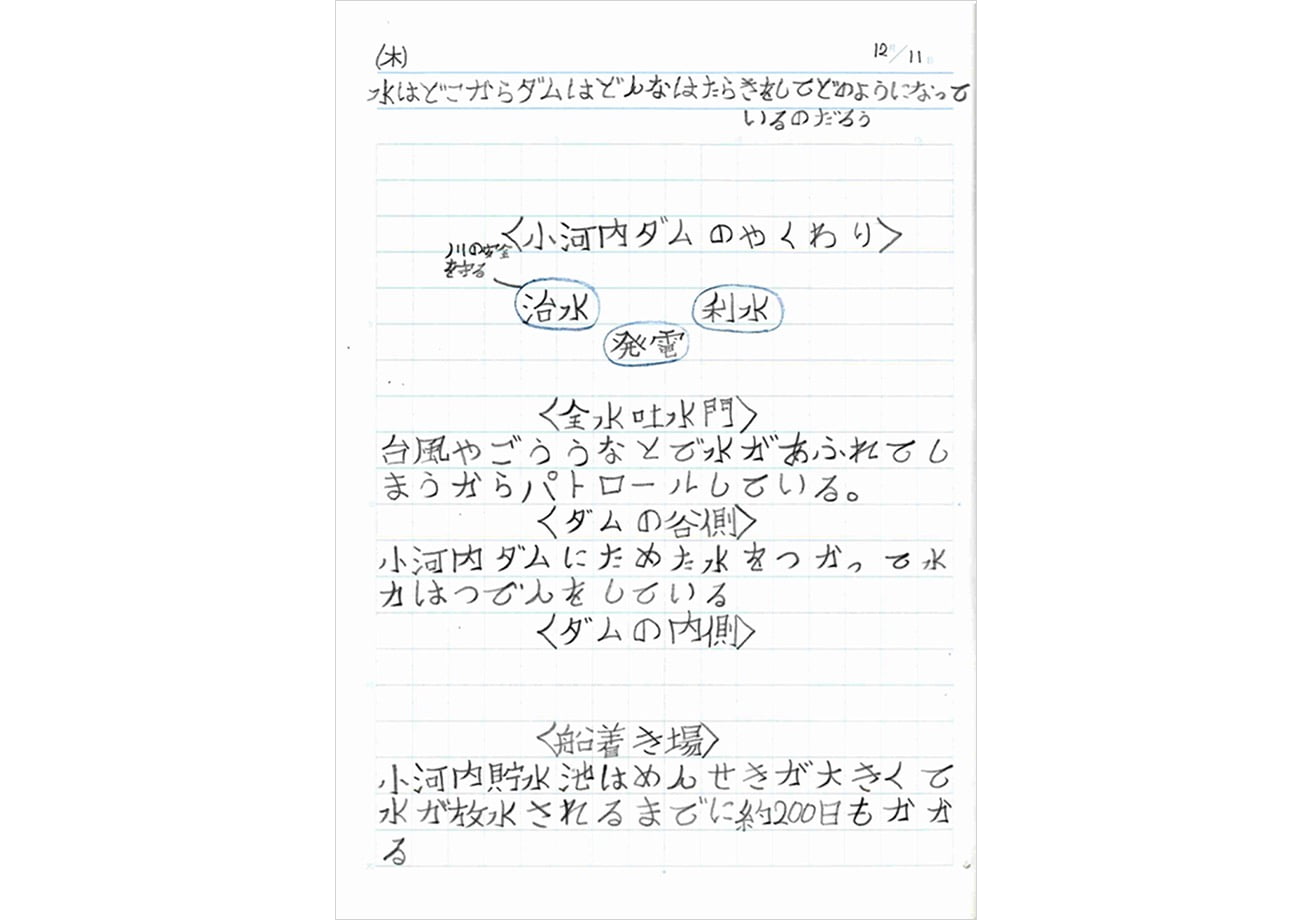 (木) 12/11
水はどこからダムはどんなはたらきをしてどのようになって
いるのだろう
〈小河内ダムのやくわり〉
川の安全
を守る
治水 利水
発電
〈全水吐水門〉
台風やごううなとで水があふれてし
まうからパトロールしている。
〈ダムの谷側〉
小河内ダムにためた水をつかって水
力はつでんをしている
〈ダムの内側〉
〈船着き場〉
小河内貯水池はめんせきが大きくて
水が放水されるまでに約200日もかか
る